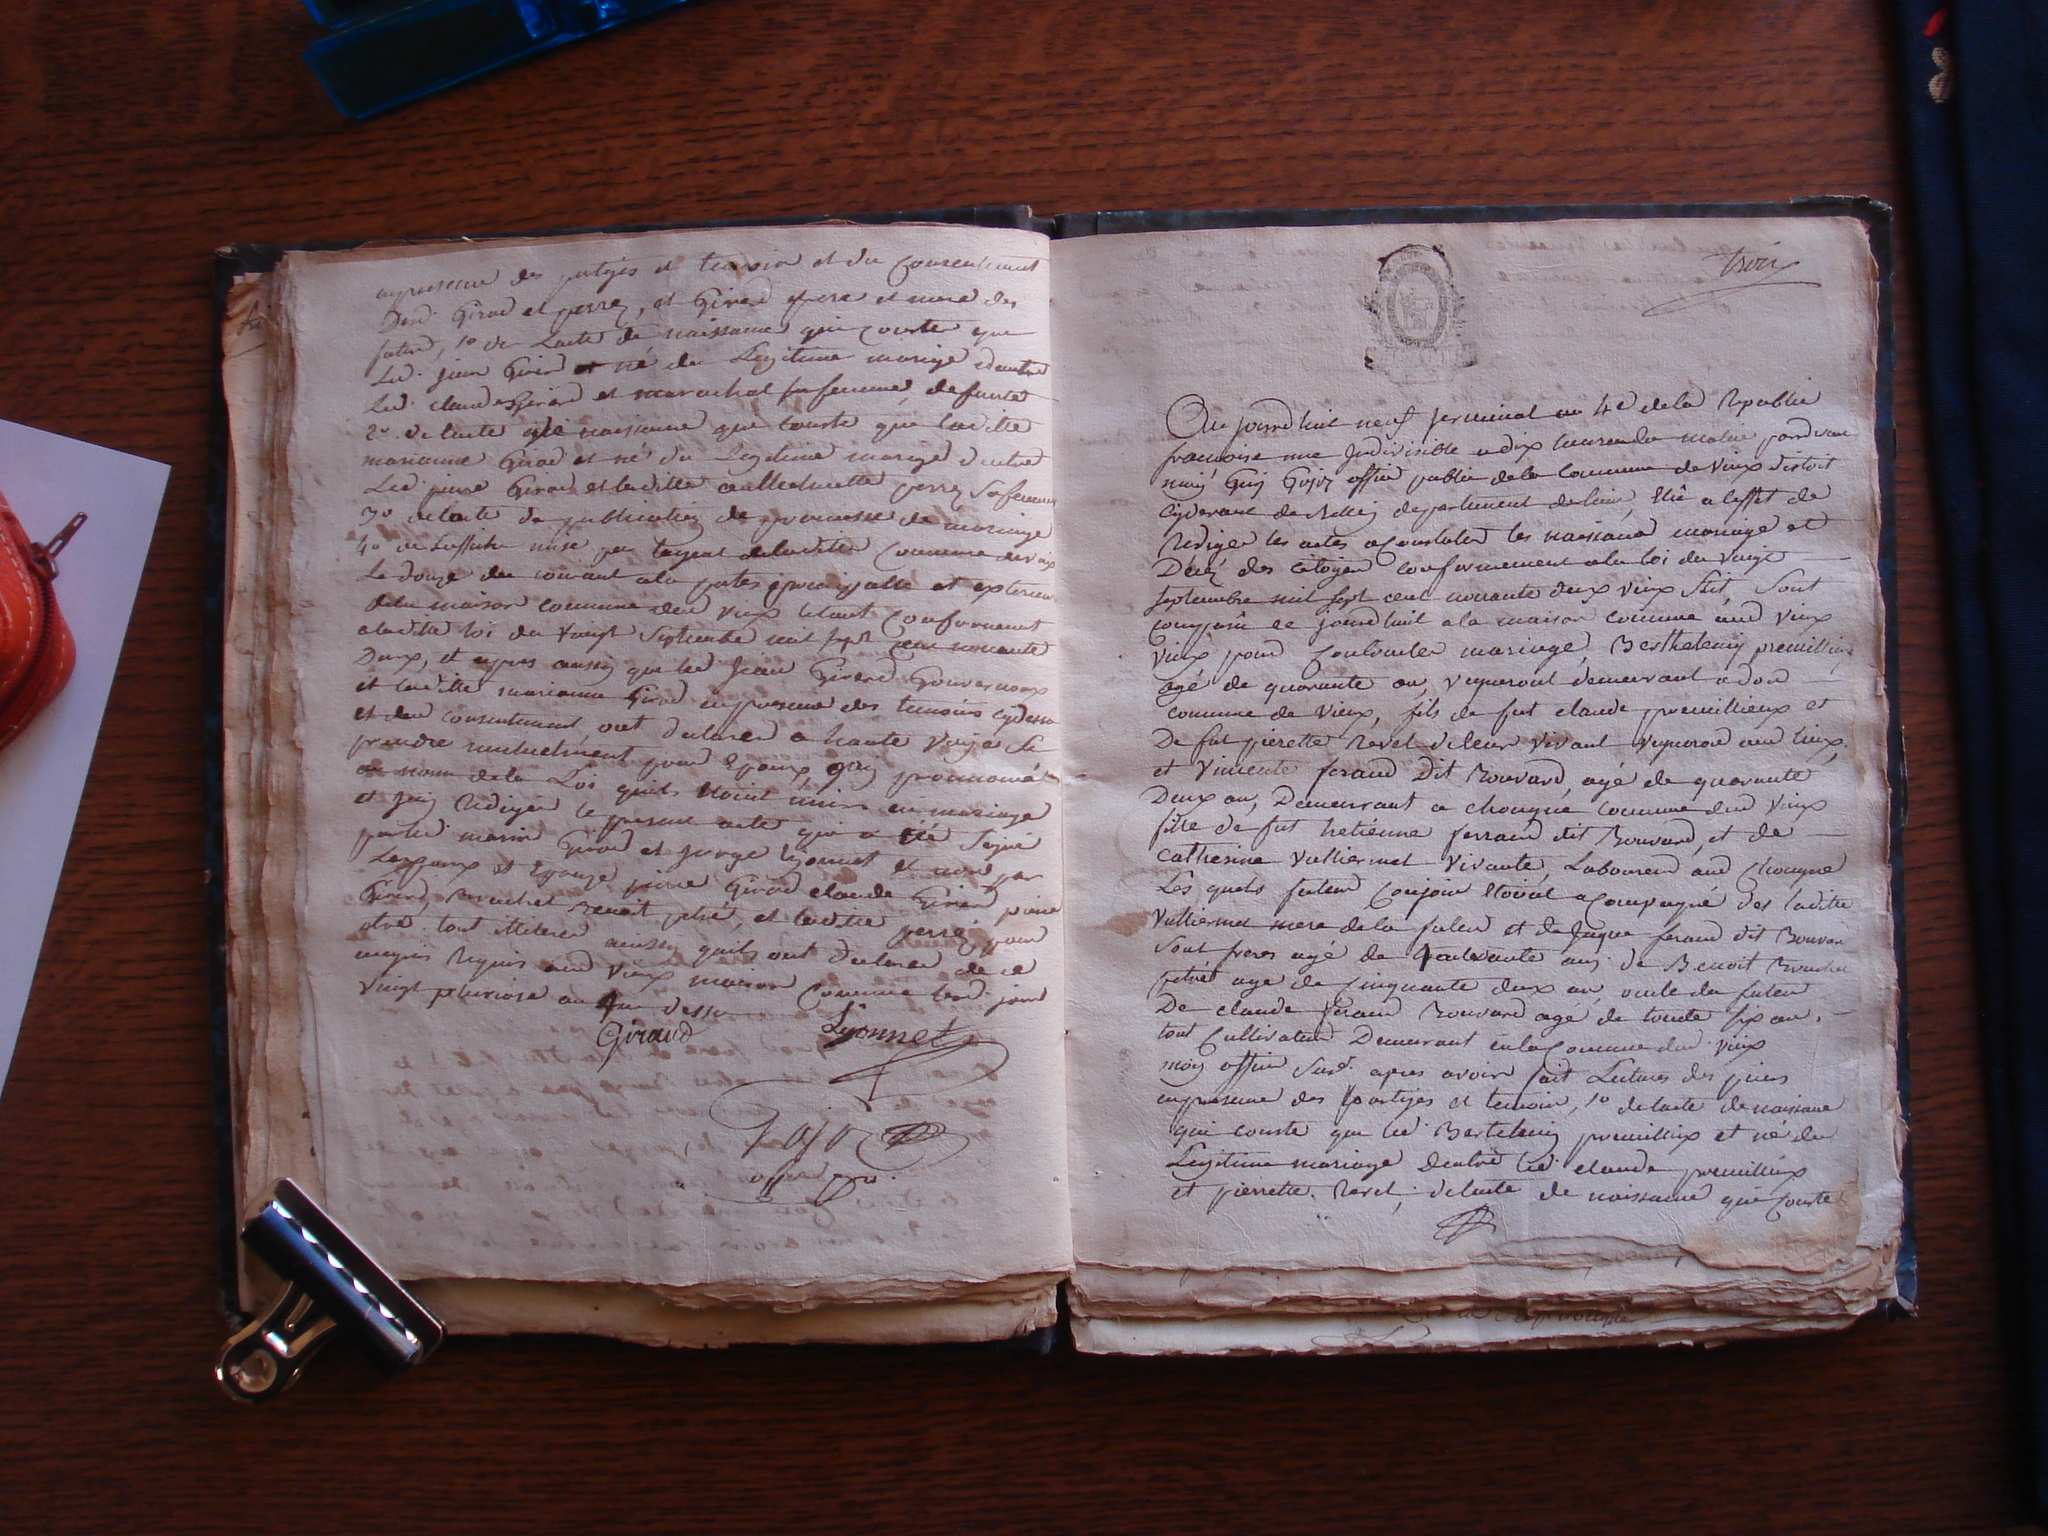 en presence des partyes et temoin et du Consentement
Desd. Girod et perre, et Girard pere et mere des
futur, 1o de Lacte de naissance qui conste que
Led. jean Girard et né du Legitime mariage d'entre
Led. claude Girard et marechal sa femme defunte
2o de lacte de naissance qui conste que laditte
marianne Girod et né du Legitime mariage d'entre
Led. pierre Girod et laditte perre sa femme
3o de lacte de publication de promesse de mariage
4o de Laffiche mise par lagent de laditte Commune de vieux
Le douze du courant a la porte principalle et exterieur
de la maison commune dud vieux le tout conformement
a laditte loi du vingt Septembre mil sept cent nonante
Deux, et apres aussy que led Jean Girard
et laditte marianne Girod en presence des temoins cydessus
et du consentement, ont declarer a haute voix Se
prendre mutuelment pour Epoux, prononcé
au nom de la Loi quils étoint unis en mariage
et jai Rediger le present acte qui a été Signé
par led marin Girod et jorge Lyonnet et non par
Lespoux et Epouze pierre Girod claude Girard
Girard, Brouchet Benoit petré, et laditte perre, pour
etre tout illiterer ainsy quils ont declarer de ce
enquis Requis aud vieux maison Commune lesd. jour
vingt pluviose an que dessus
Giraud Lyonnet
Gojoz
officier pu.
trois
Aujourdhuit neuf Germinal an 4e de la Republic
francoise une Indivisible a dix heures du matin pardevant
moy Guy Gojoz officier public de la Commune de Vieux distroit
cydevant de Belley departement de lain, Elû a leffet de
Rediger les actes a constater les naissance mariage et
Decé des Citoyen conformement a la loi du Vingt
septembre mil sept cent nonante deux vieux Stil, Sont
comparû ce jourdhuit a la maison commune aud vieux
vieux pour Contracter mariage, Berthelemy premillieux
agé de quarante an, vigneront demeurant a don
commune de Vieux, fils de fut claude premillieux et
De fut pierette Revel de leur vivant vigneron aud lieux,
et Vincente feraud Dit Bouvard, agé de quarante
Deux an, Demeurant a Chongne commune dud Vieux
fille de fut hetienne ferraud dit Bouvard, et de
Catherine Vulliermet Vivante, Laboureur aud Chongne
Les quels futur Conjoin Etoint acompagné des laditte
Vulliermet mere de la futur et de Jaque feraud dit Bouvar
Sont freres agé de ans, de Benoit Brouchet
petré age de Cinquante deux an, oncle du futur
De claude feraud Bouvard age de trente six an,
tout Cultivateur Demeurant en la Commune dud vieux
moy officier Susd. apres avoir fait Lectures des pieces
en presence des partyes et temoin, 1o de lacte de naissance
qui conste que led Bertelemy premillieux et né du
Legitime mariage d'entre led. claude premillieux
et pierrette Revel, de lacte de naissance qui Conste